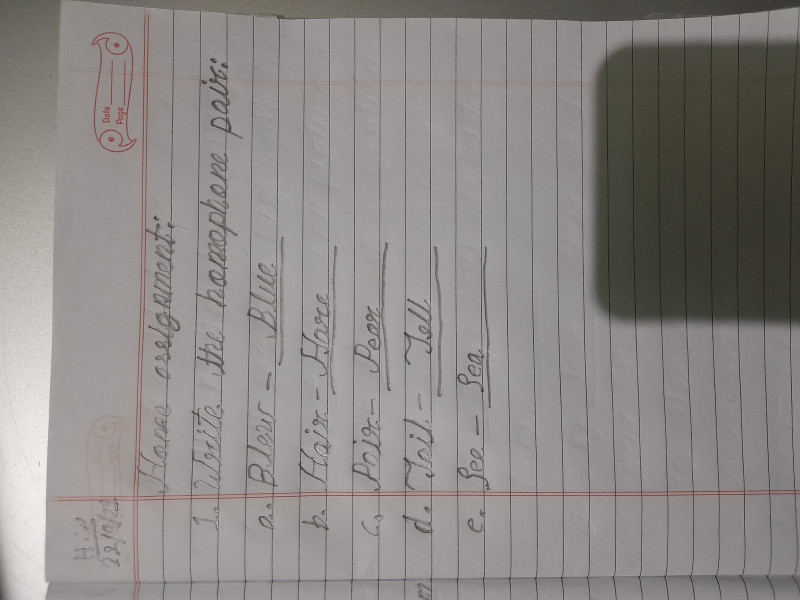 Date
Page
22/9/22
Home assignment:
1. Write the homophone pair:
a. Blew - Blue
b. Hair - Hare
c. Pair - Pear
d. Tail - Tell
e. See - Sea
m